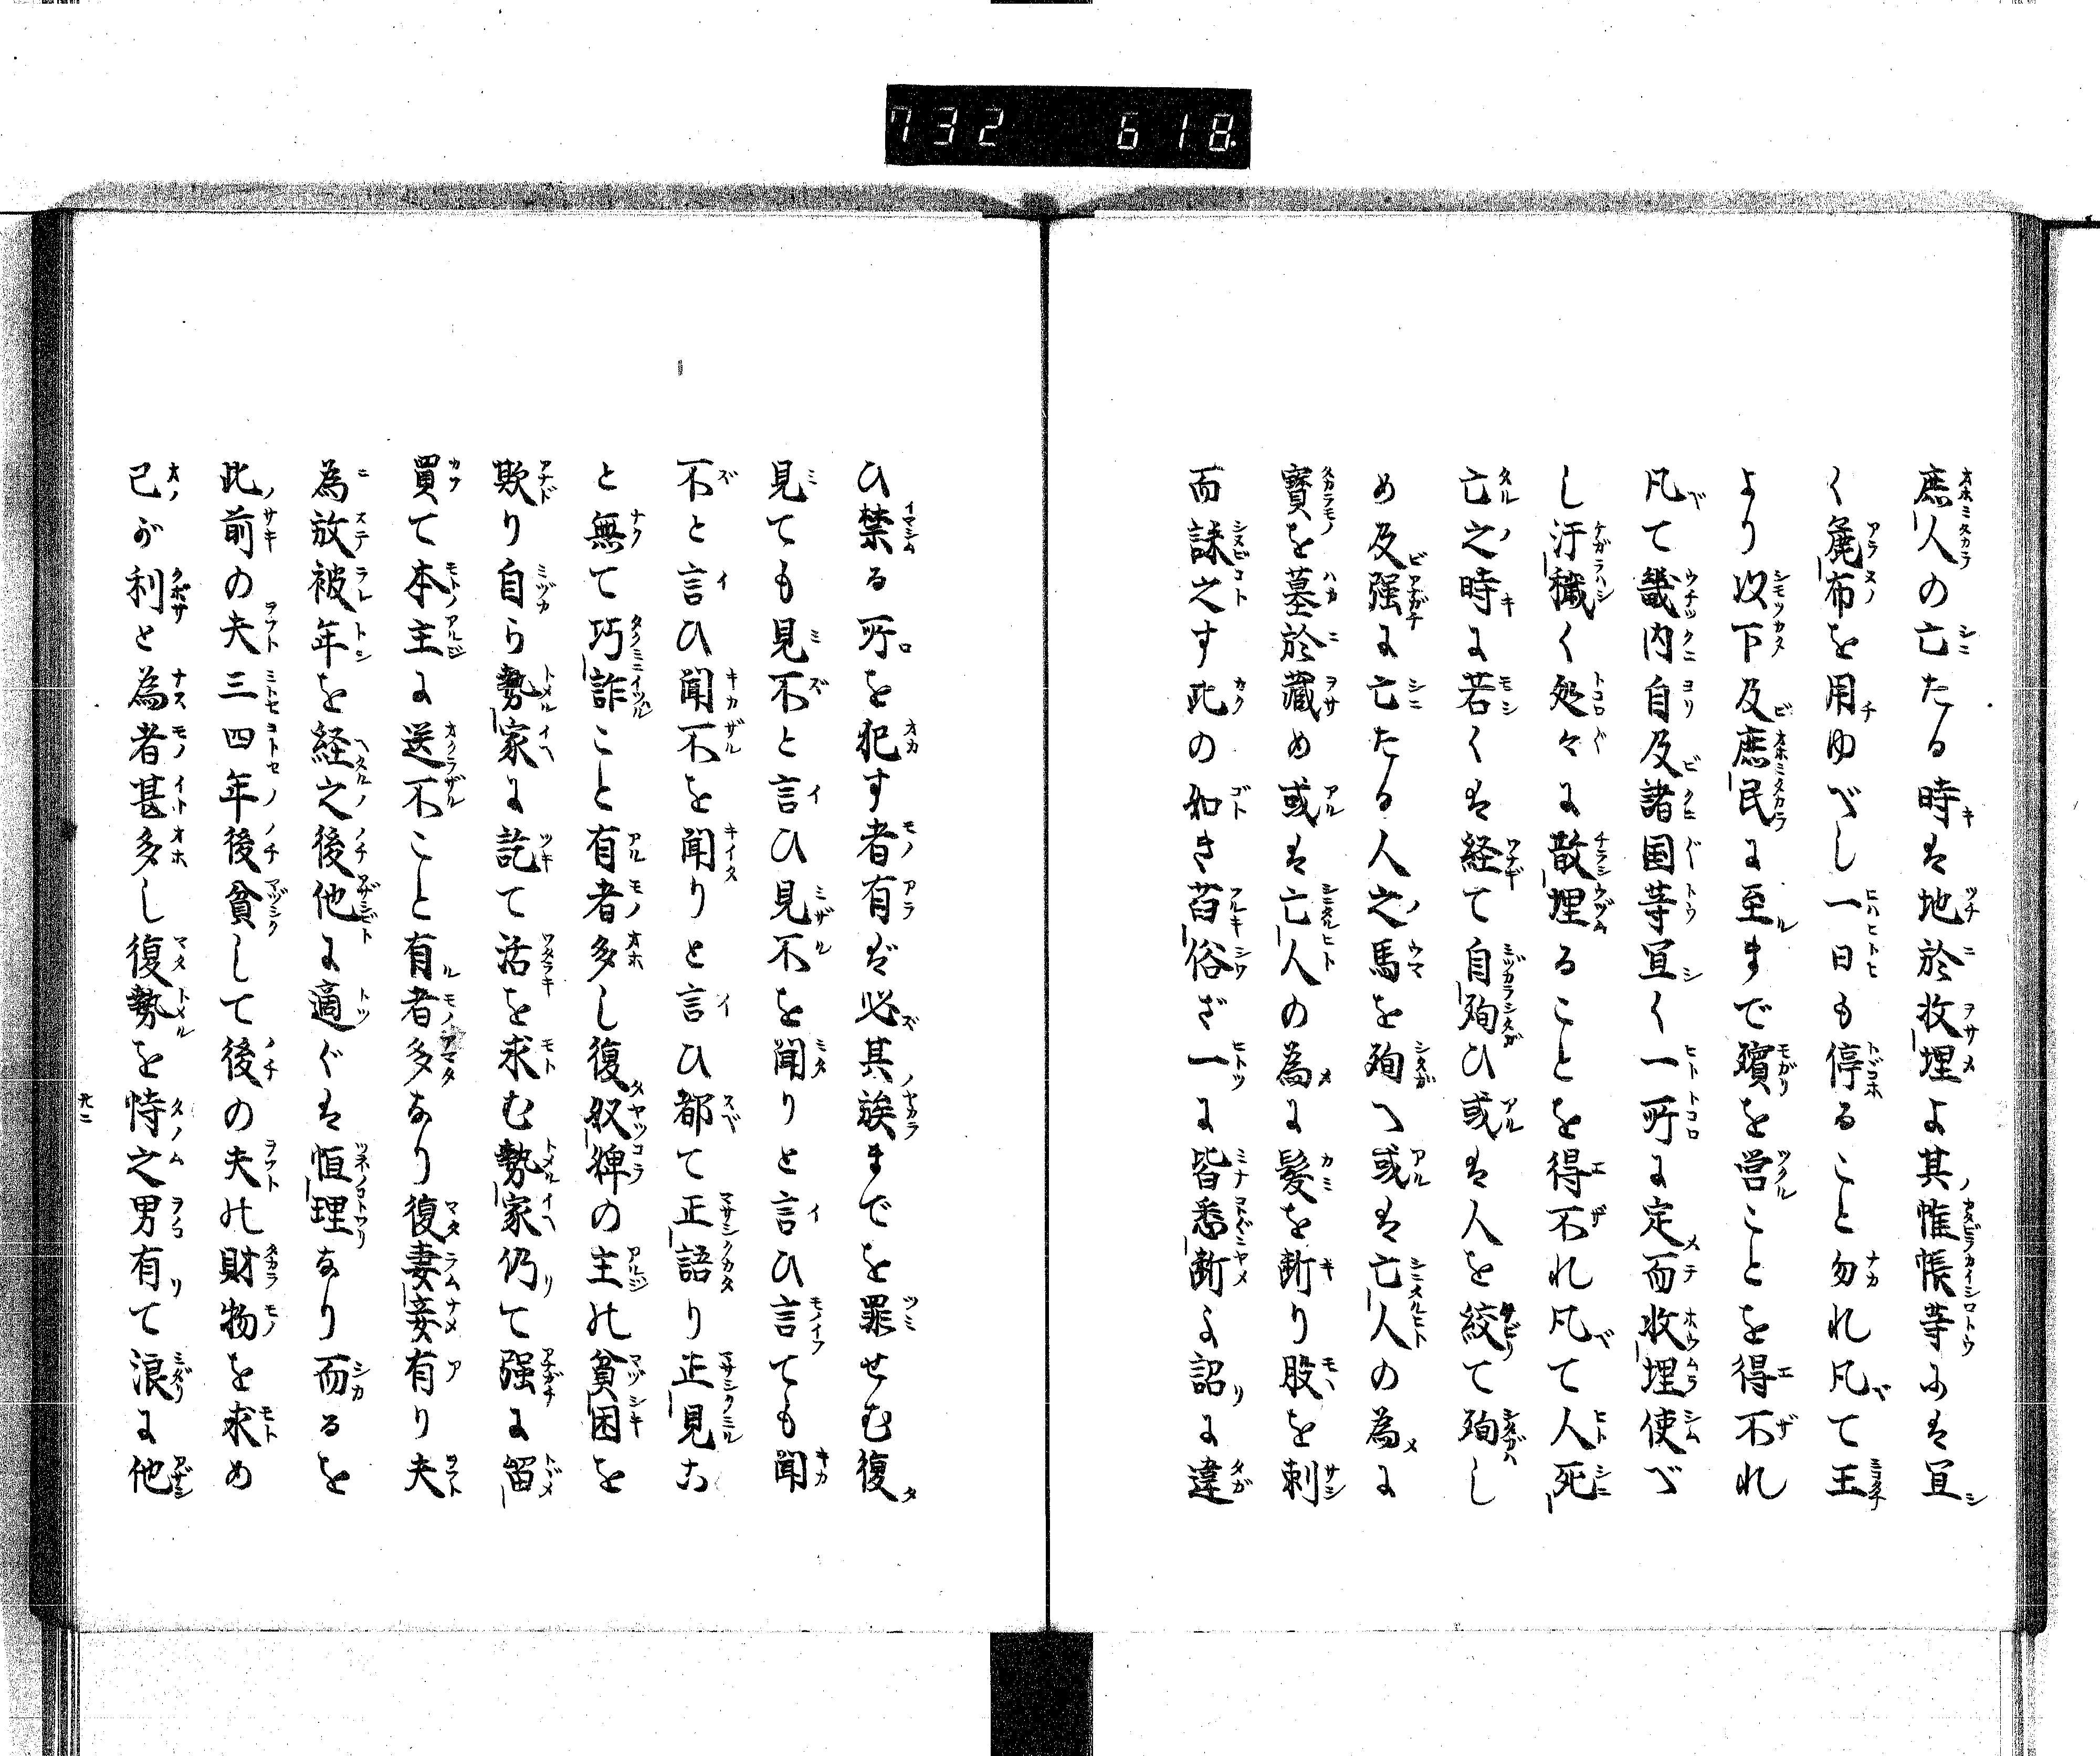 732 618
庶人の亡たる時は地於收埋よ其帷帳等ふは宜
く麁布を用ゆべし一日も停ること勿れ凡て王
より以下及庶民に至まで殯を営ことを得不れ
凡て畿内自及諸国等宜く一所に定而收埋使べ
し汙穢く処々に散埋ることを得不れ凡て人死
亡之時に若くは経て自殉ひ或は人を絞て殉し
め及强に亡たる人之馬を殉へ或は亡人の為に
寶を墓於蔵め或は亡人の為に髮を断り股を刺
而誄之す此の如き舊俗ざ一に皆悉断よ詔に違
ひ禁る所を犯す者有ば必其族までを罪せむ復
見ても見不と言ひ見不を聞りと言ひ言ても聞
不と言ひ聞不を聞りと言ひ都て正語り正見こ
と無て巧詐こと有者多し復奴婢の主の貧困を
欺り自ら勢家に託て活を求む勢家仍て强に留
買て本主に送不こと有者多なり復妻妾有り夫
為放被年を経之後他に適ぐは恒理なり而るを
此前の夫三四年後貧して後の夫の財物を求め
己が利と為者甚多し復勢を恃之男有て浪に他
九二